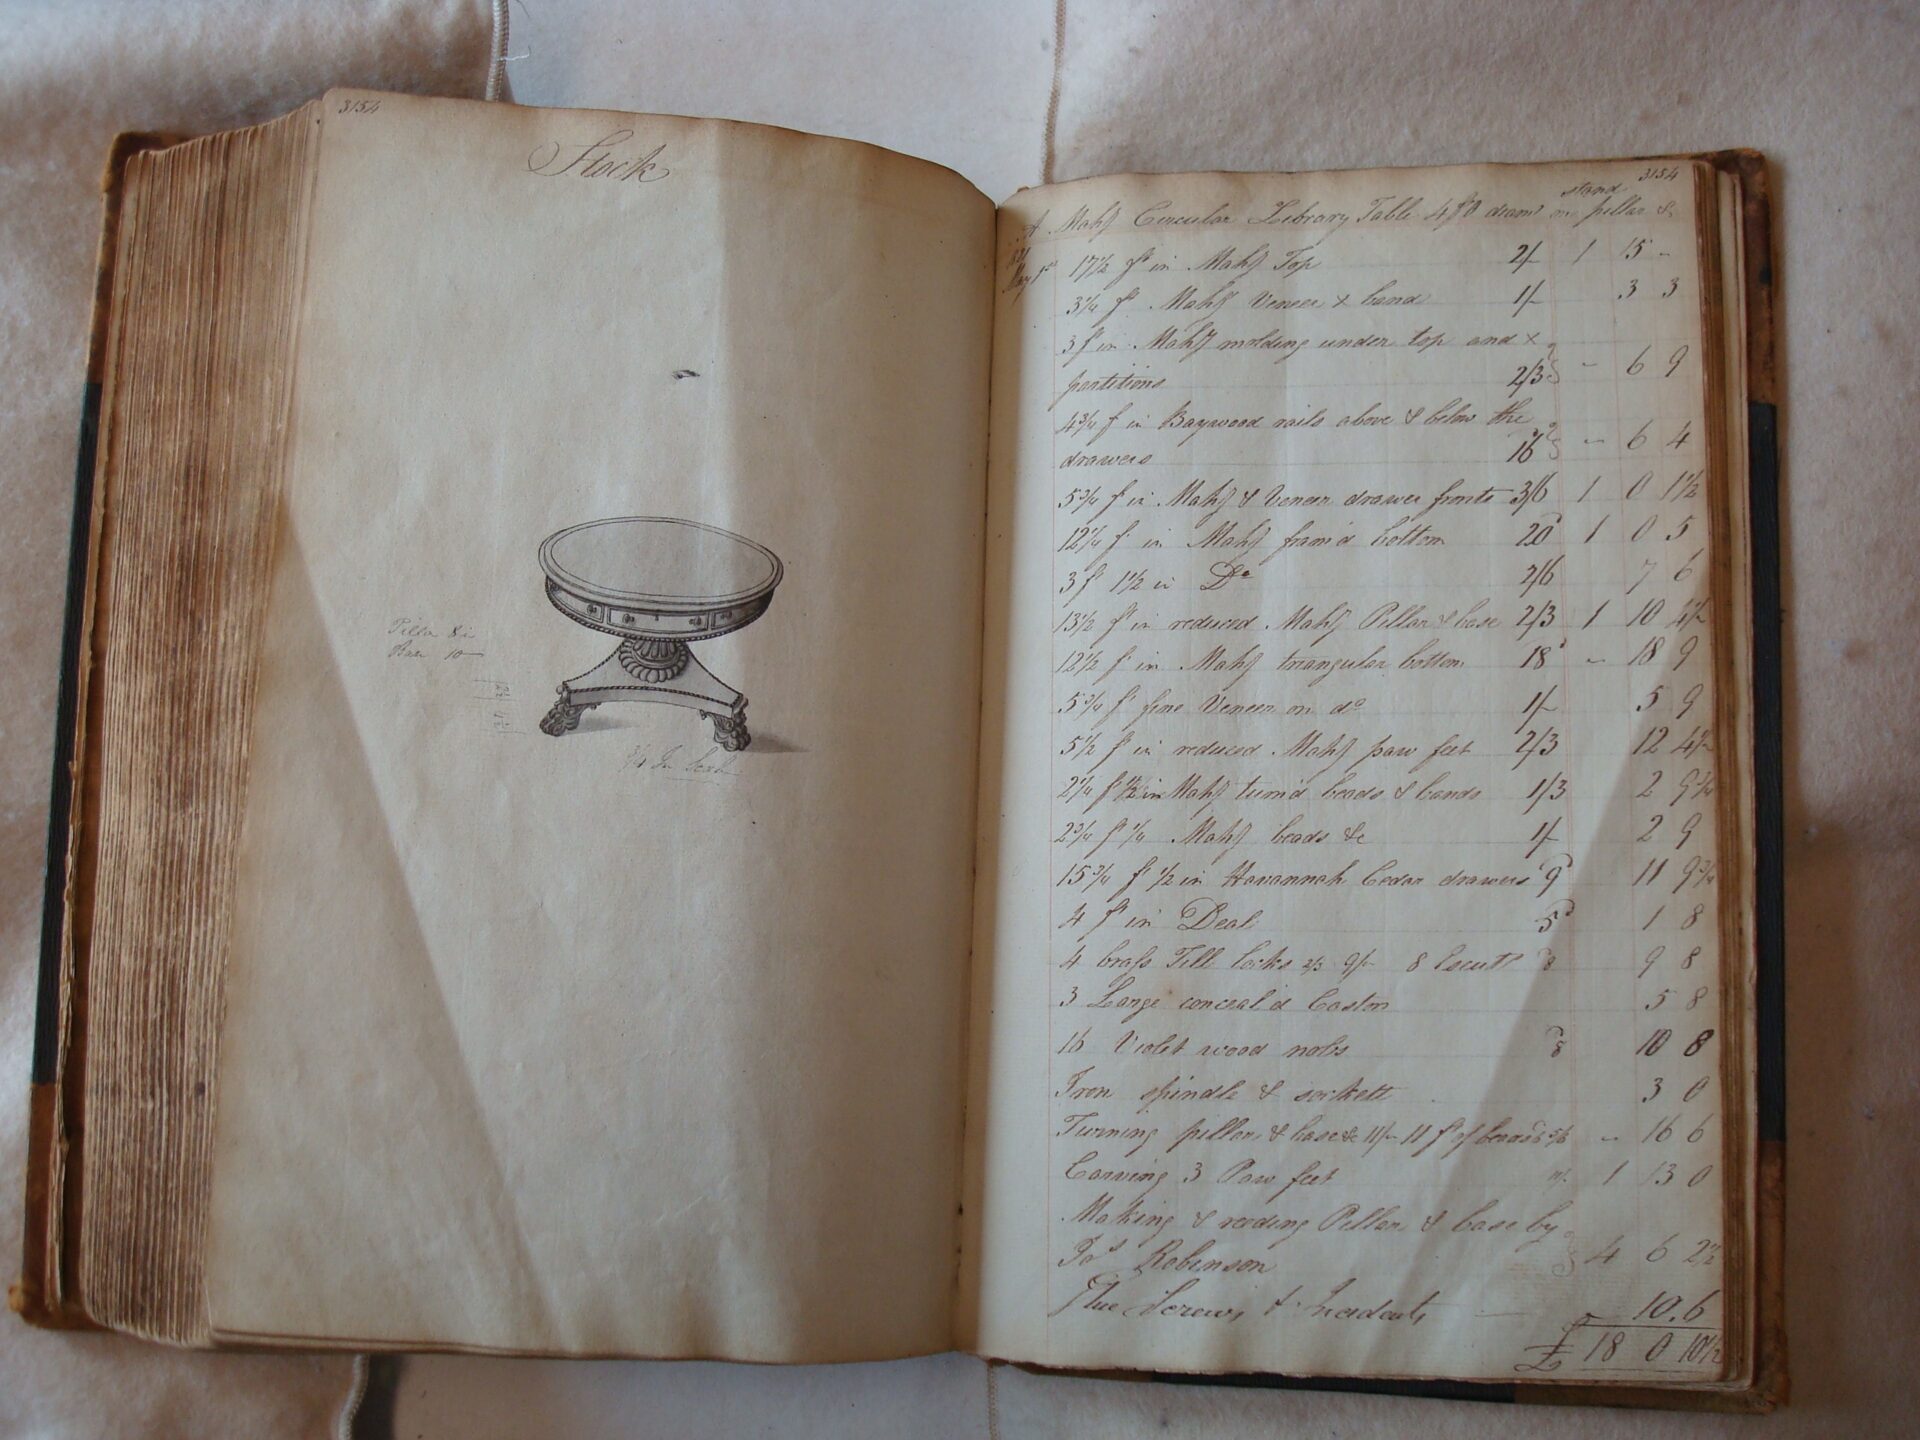 3154
Stock
Pillar &
Base 10
3/4 In Scale
3154
stand
A Mahy Circular Library Table 4 f 0 diamr on pillar &c
1831
May 1st 17 1/2 ft in Mahy Top 2/- 1 15 -
3 1/4 ft Mahy Veneer x band 1/- 3 3
3 ft in Mahy molding under top and x
partitions 2/3 - 6 9
4 3/4 f in Baywood rails above & below the
drawers 16d - 6 4
5 3/4 ft in Mahy & Veneer drawer fronts 3/6 1 0 1 1/2
12 1/4 f in Mahy fram'd bottom 20d 1 0 5
3 ft 1 1/2 in Do 2/6 7 6
13 1/2 ft in reduced Mahy Pillar & base 2/3 1 10 4 1/2
12 1/2 f in Mahy triangular bottom 18d - 18 9
5 3/4 f fine Veneer on do 1/- 5 9
5 1/2 ft in reduced Mahy paw feet 2/3 12 4 1/2
2 1/4 f 1 1/2 in Mahy turn'd beads & bands 1/3 2 9 3/4
2 3/4 ft 1/4 Mahy beads &c 1/- 2 9
15 3/4 ft 1/2 in Havannah Cedar drawers 9d 11 9 3/4
4 ft in Deal 5d 1 8
4 brass Till locks 2/3 9/- 8 Escuts 8d 9 8
3 Large conceal'd Castors 5 8
16 Violet wood nobs 8d 10 8
Iron spindle & sockett 3 0
Turning pillar & base &c 11/- 11 ft of beads 6d 5/6 - 16 6
Carving 3 Paw feet 11/- 1 13 0
Making & reeding Pillar & base by
Jos Robinson 4 6 2 1/2
Glue Screws & Incidents 10.6
£ 18 0 10 1/2